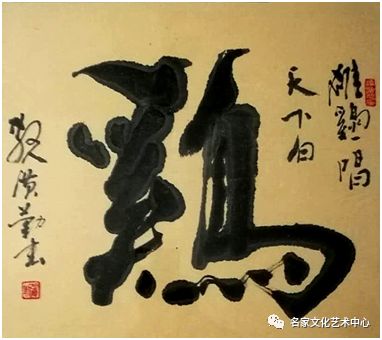 雄鷄一唱
天下白
鷄
勤书
名家文化艺术中心